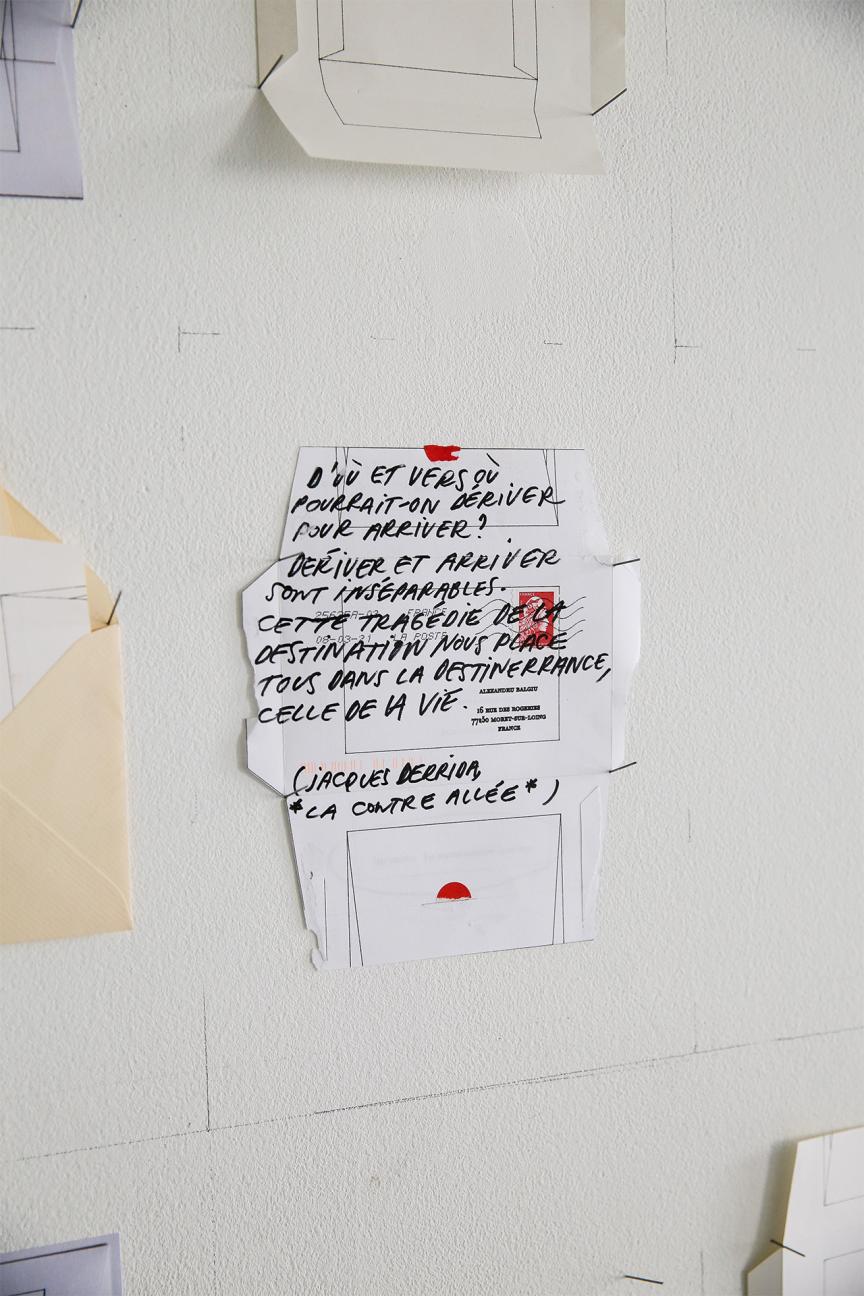 D'OÙ ET VERS OÙ
POURRAIT-ON DÉRIVER
POUR ARRIVER?
DÉRIVER ET ARRIVER
SONT INSÉPARABLES.
CETTE TRAGÉDIE DE LA
DESTINATION NOUS PLACE
TOUS DANS LA DESTINERRANCE,
CELLE DE LA VIE.
(JACQUES DERRIDA,
*LA CONTRE ALLÉE*)
FRANCE
FRANCE
08-03-21 LA POSTE
ALEXANDRU BALGIU
16 RUE DES ROGERIES
77250 MORET-SUR-LOING
FRANCE